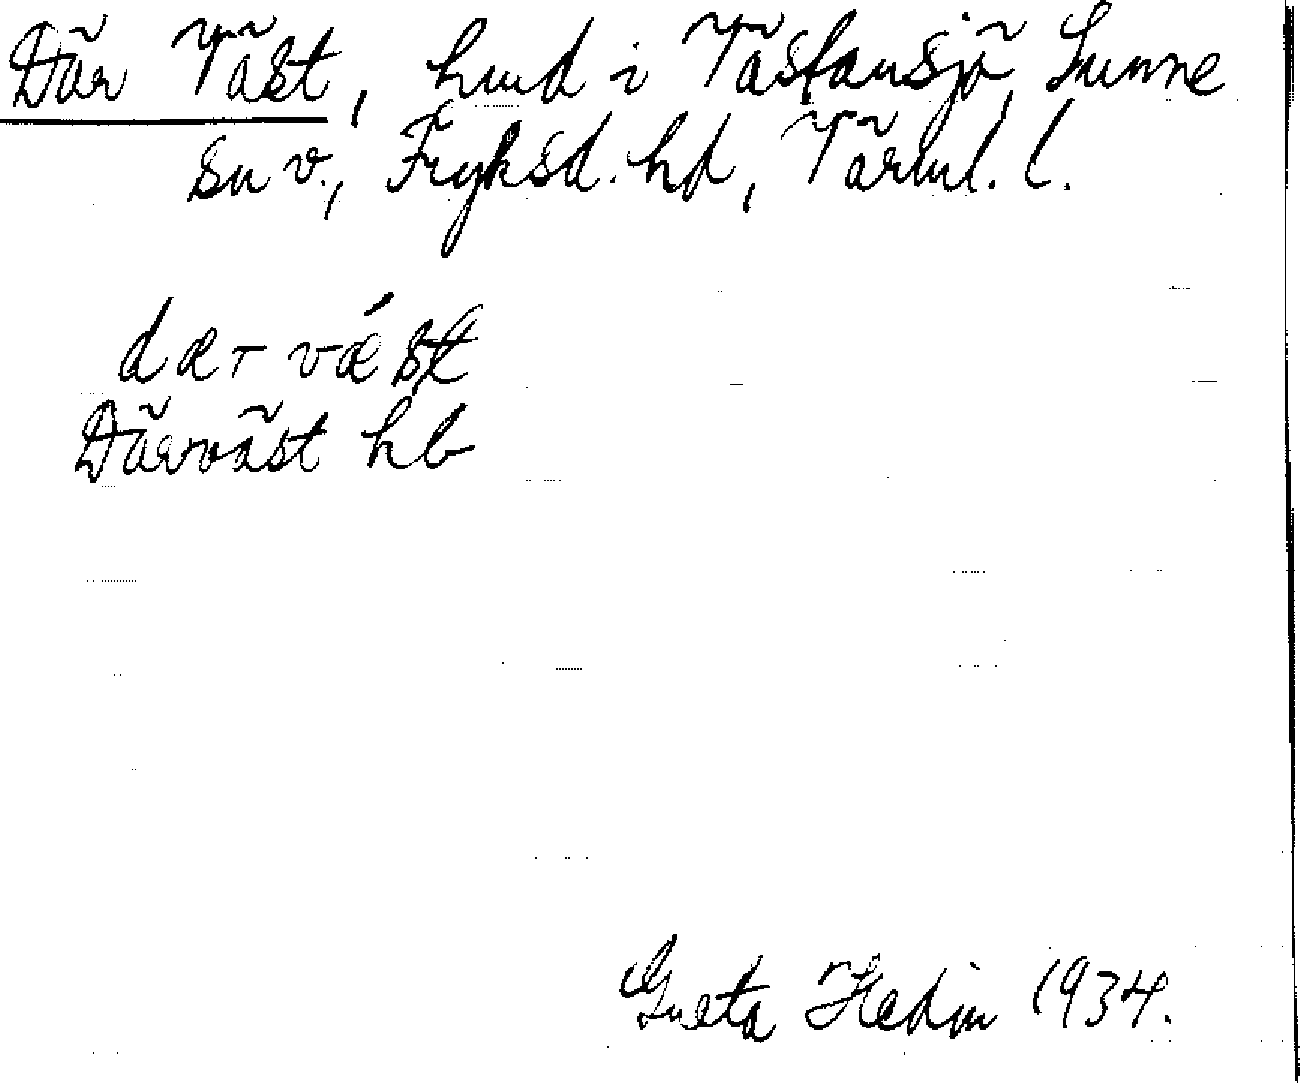 Där Väst, hmd i Västansjö, Sunne
sn v., Fryksd. hd, Värml. l.
dær væ´st
Därväst hb
Greta Hedin 1934.